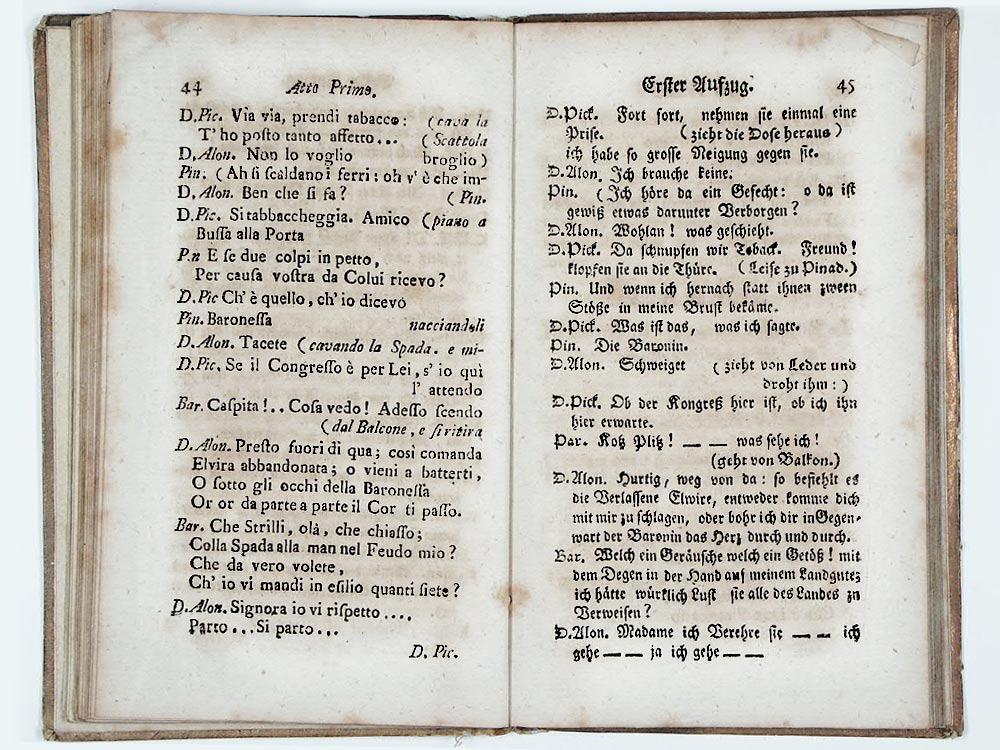 44 Atto Primo.
D.Pic. Via via, prendi tabacco: (cava la
T' ho posto tanto affetto... (Scattola
D. Alon. Non lo voglio broglio)
Pin. (Ah si scaldano i ferri: oh v' è che im-
D. Alon. Ben che si fa? (Pin.
D.Pic. Si tabbaccheggia. Amico (piano a
Bussa alla Porta
P.n E se due colpi in petto,
Per causa vostra da Colui ricevo?
D.Pic Ch' è quello, ch' io dicevo
Pin. Baronessa nacciandoli
D. Alon. Tacete (cavando la Spada. e mi-
D.Pic. Se il Congresso è per Lei, s' io quì
l' attendo
Bar. Caspita!.. Cosa vedo! Adesso scendo
(dal Balcone, e si ritira
D. Alon. Presto fuori di qua; così comanda
Elvira abbandonata; o vieni a batterti,
O sotto gli occhi della Baronessa
Or or da parte a parte il Cor ti passo.
Bar. Che Strilli, olà, che chiasso;
Colla Spada alla man nel Feudo mio?
Che da vero volete,
Ch' io vi mandi in esilio quanti siete?
D. Alon. Signora io vi rispetto....
Parto...Si parto...
D. Pic.
Erster Aufzug. 45
D.Pick. Fort fort, nehmen sie einmal eine
Prise. (zieht die Dose heraus)
ich habe so grosse Neigung gegen sie.
D.Alon. Ich brauche keine.
Pin. (Ich höre da ein Gefecht: o da ist
gewiß etwas darunter Verborgen?
D.Alon. Wohlan! was geschieht.
D.Pick. Da schnupfen wir Toback. Freund!
klopfen sie an die Thüre. (Leise zu Pinad.)
Pin. Und wenn ich hernach statt ihnen zween
Stöße in meine Brust bekäme.
D.Pick. Was ist das, was ich sagte.
Pin. Die Baronin.
D.Alon. Schweiget (zieht von Leder und
droht ihm:)
D.Pick. Ob der Kongreß hier ist, ob ich ihn
hier erwarte.
Par. Kotz Plitz! — — was sehe ich!
(geht von Balkon.)
D.Alon. Hurtig, weg von da: so befiehlt es
die Verlassene Elwire, entweder komme dich
mit mir zu schlagen, oder bohr ich dir in Gegen-
wart der Baronin das Herz durch und durch.
Bar. Welch ein Geräusche welch ein Getöß! mit
dem Degen in der Hand auf meinem Landgute;
ich hätte würklich Lust sie alle des Landes zu
Verweisen?
D.Alon. Madame ich Verehre sie — — ich
gehe — — ja ich gehe — —